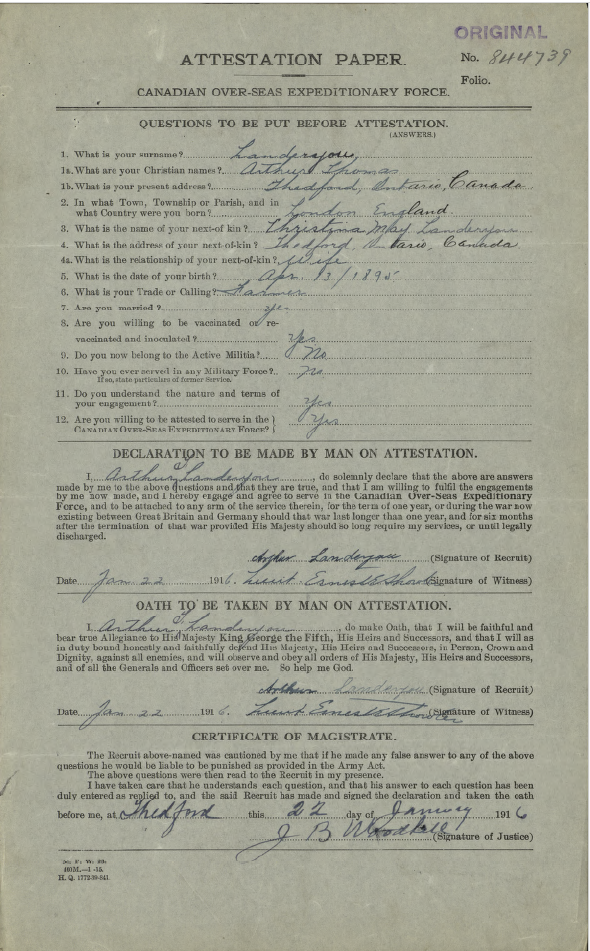 ORIGINAL
ATTESTATION PAPER.
No. 844739
Folio.
CANADIAN OVER-SEAS EXPEDITIONARY FORCE.
QUESTIONS TO BE PUT BEFORE ATTESTATION.
(ANSWERS.)
1. What is your surname? Landeryou,
1a. What are your Christian names? Arthur Thomas
1b. What is your present address? Thedford, Ontario, Canada
2. In what Town, Township or Parish, and in
what Country were you born? London England.
3. What is the name of your next-of-kin? Christina May Landeryou
4. What is the address of your next-of-kin? Thedford Ontario, Canada
4a. What is the relationship of your next-of-kin? Wife
5. What is the date of your birth? Apr. 13/1895
6. What is your Trade or Calling? Farmer
7. Are you married? yes
8. Are you willing to be vaccinated or re-
vaccinated and inoculated? Yes
9. Do you now belong to the Active Militia? No
10. Have you ever served in any Military Force? No
If so, state particulars of former Service.
11. Do you understand the nature and terms of
your engagement? Yes
12. Are you willing to be attested to serve in the
CANADIAN OVER-SEAS EXPEDITIONARY FORCE? Yes
DECLARATION TO BE MADE BY MAN ON ATTESTATION.
I, Arthur T Landeryou, do solemnly declare that the above are answers
made by me to the above questions and that they are true, and that I am willing to fulfil the engagements
by me now made, and I hereby engage and agree to serve in the Canadian Over-Seas Expeditionary
Force, and to be attached to any arm of the service therein, for the term of one year, or during the war now
existing between Great Britain and Germany should that war last longer than one year, and for six months
after the termination of that war provided His Majesty should so long require my services, or until legally
discharged.
Arthur Landeryou (Signature of Recruit)
Date Jan 22 1916. Lieut. Ernest (Signature of Witness)
OATH TO BE TAKEN BY MAN ON ATTESTATION.
I, Arthur T Landeryou, do make Oath, that I will be faithful and
bear true Allegiance to His Majesty King George the Fifth, His Heirs and Successors, and that I will as
in duty bound honestly and faithfully defend His Majesty, His Heirs and Successors, in Person, Crown and
Dignity, against all enemies, and will observe and obey all orders of His Majesty, His Heirs and Successors,
and of all the Generals and Officers set over me. So help me God.
Arthur Landeryou (Signature of Recruit)
Date Jan 22 1916. Lieut Ernest (Signature of Witness)
CERTIFICATE OF MAGISTRATE.
The Recruit above-named was cautioned by me that if he made any false answer to any of the above
questions he would be liable to be punished as provided in the Army Act.
The above questions were then read to the Recruit in my presence.
I have taken care that he understands each question, and that his answer to each question has been
duly entered as replied to, and the said Recruit has made and signed the declaration and taken the oath
before me, at Thedford this 22 day of January 1916
J B Woodhall (Signature of Justice)
H. Q. 1772-39-841.